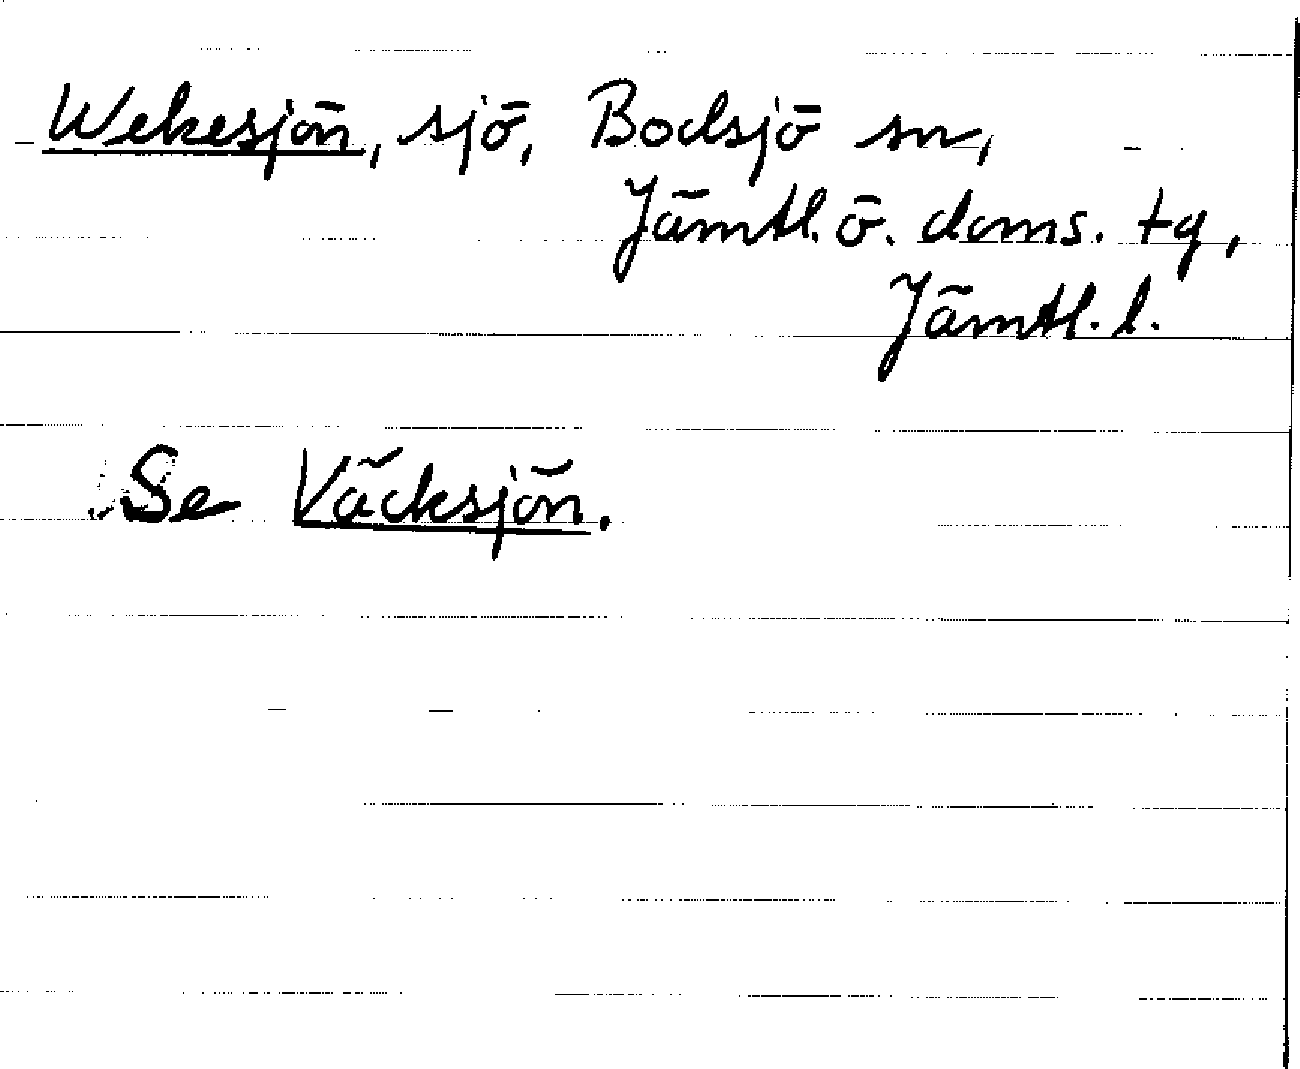 Wekesjön, sjö, Bodsjö sn,
Jämtl. ö. doms. tg,
Jämtl. l.
Se Väcksjön.